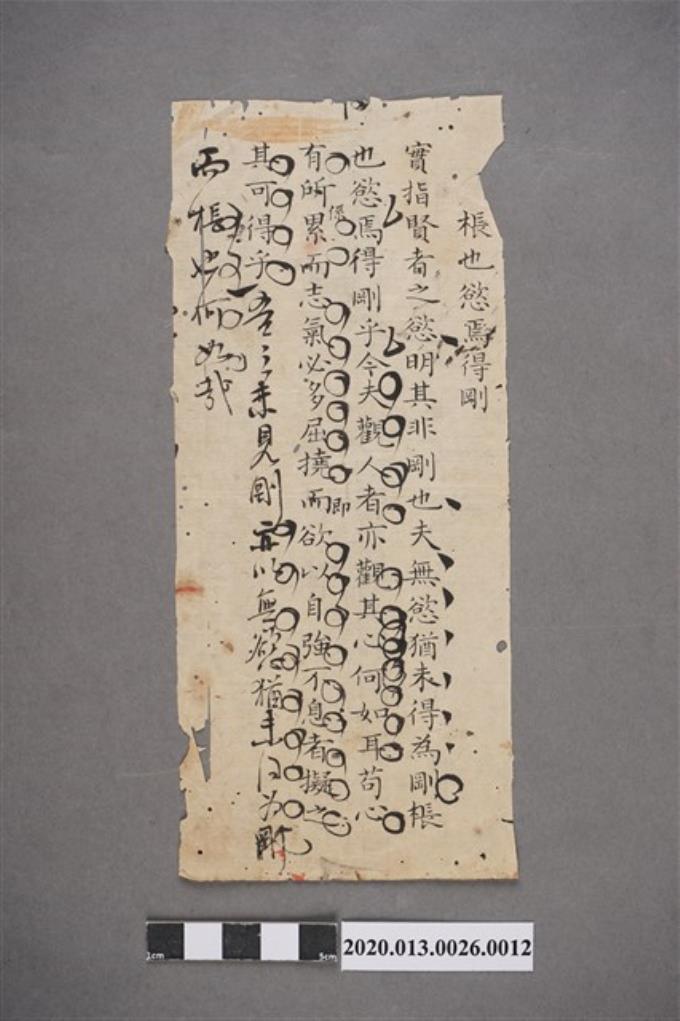 棖也慾焉得剛
實指賢者之慾明其非剛也夫無慾猶未得為剛棖
也慾焉得剛乎今夫觀人者亦觀其心何如耳苟心
有所累而志氣必多屈撓而欲以自強不息者擬之
係
即
其可得乎吾之未見剛亦以無慾猶未得為剛
而棖也何如哉
1cm
5cm
2020.013.0026.0012